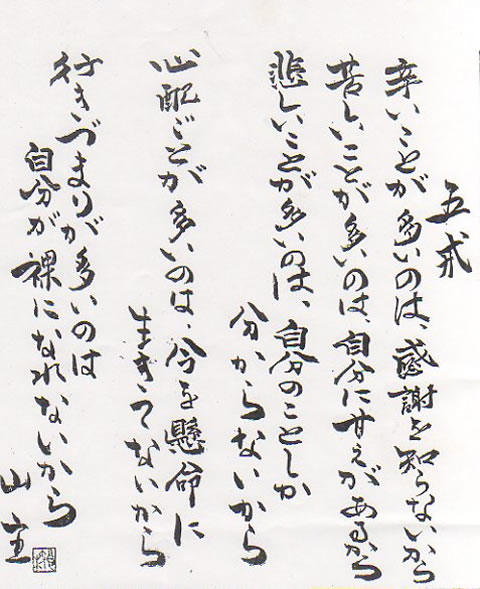 五戒
辛いことが多いのは、感謝を知らないから
苦しいことが多いのは、自分に甘えがあるから
悲しいことが多いのは、自分のことしか
分からないから
心配ごとが多いのは、今を懸命に
生きてないから
行きづまりが多いのは
自分が裸になれないから
山主